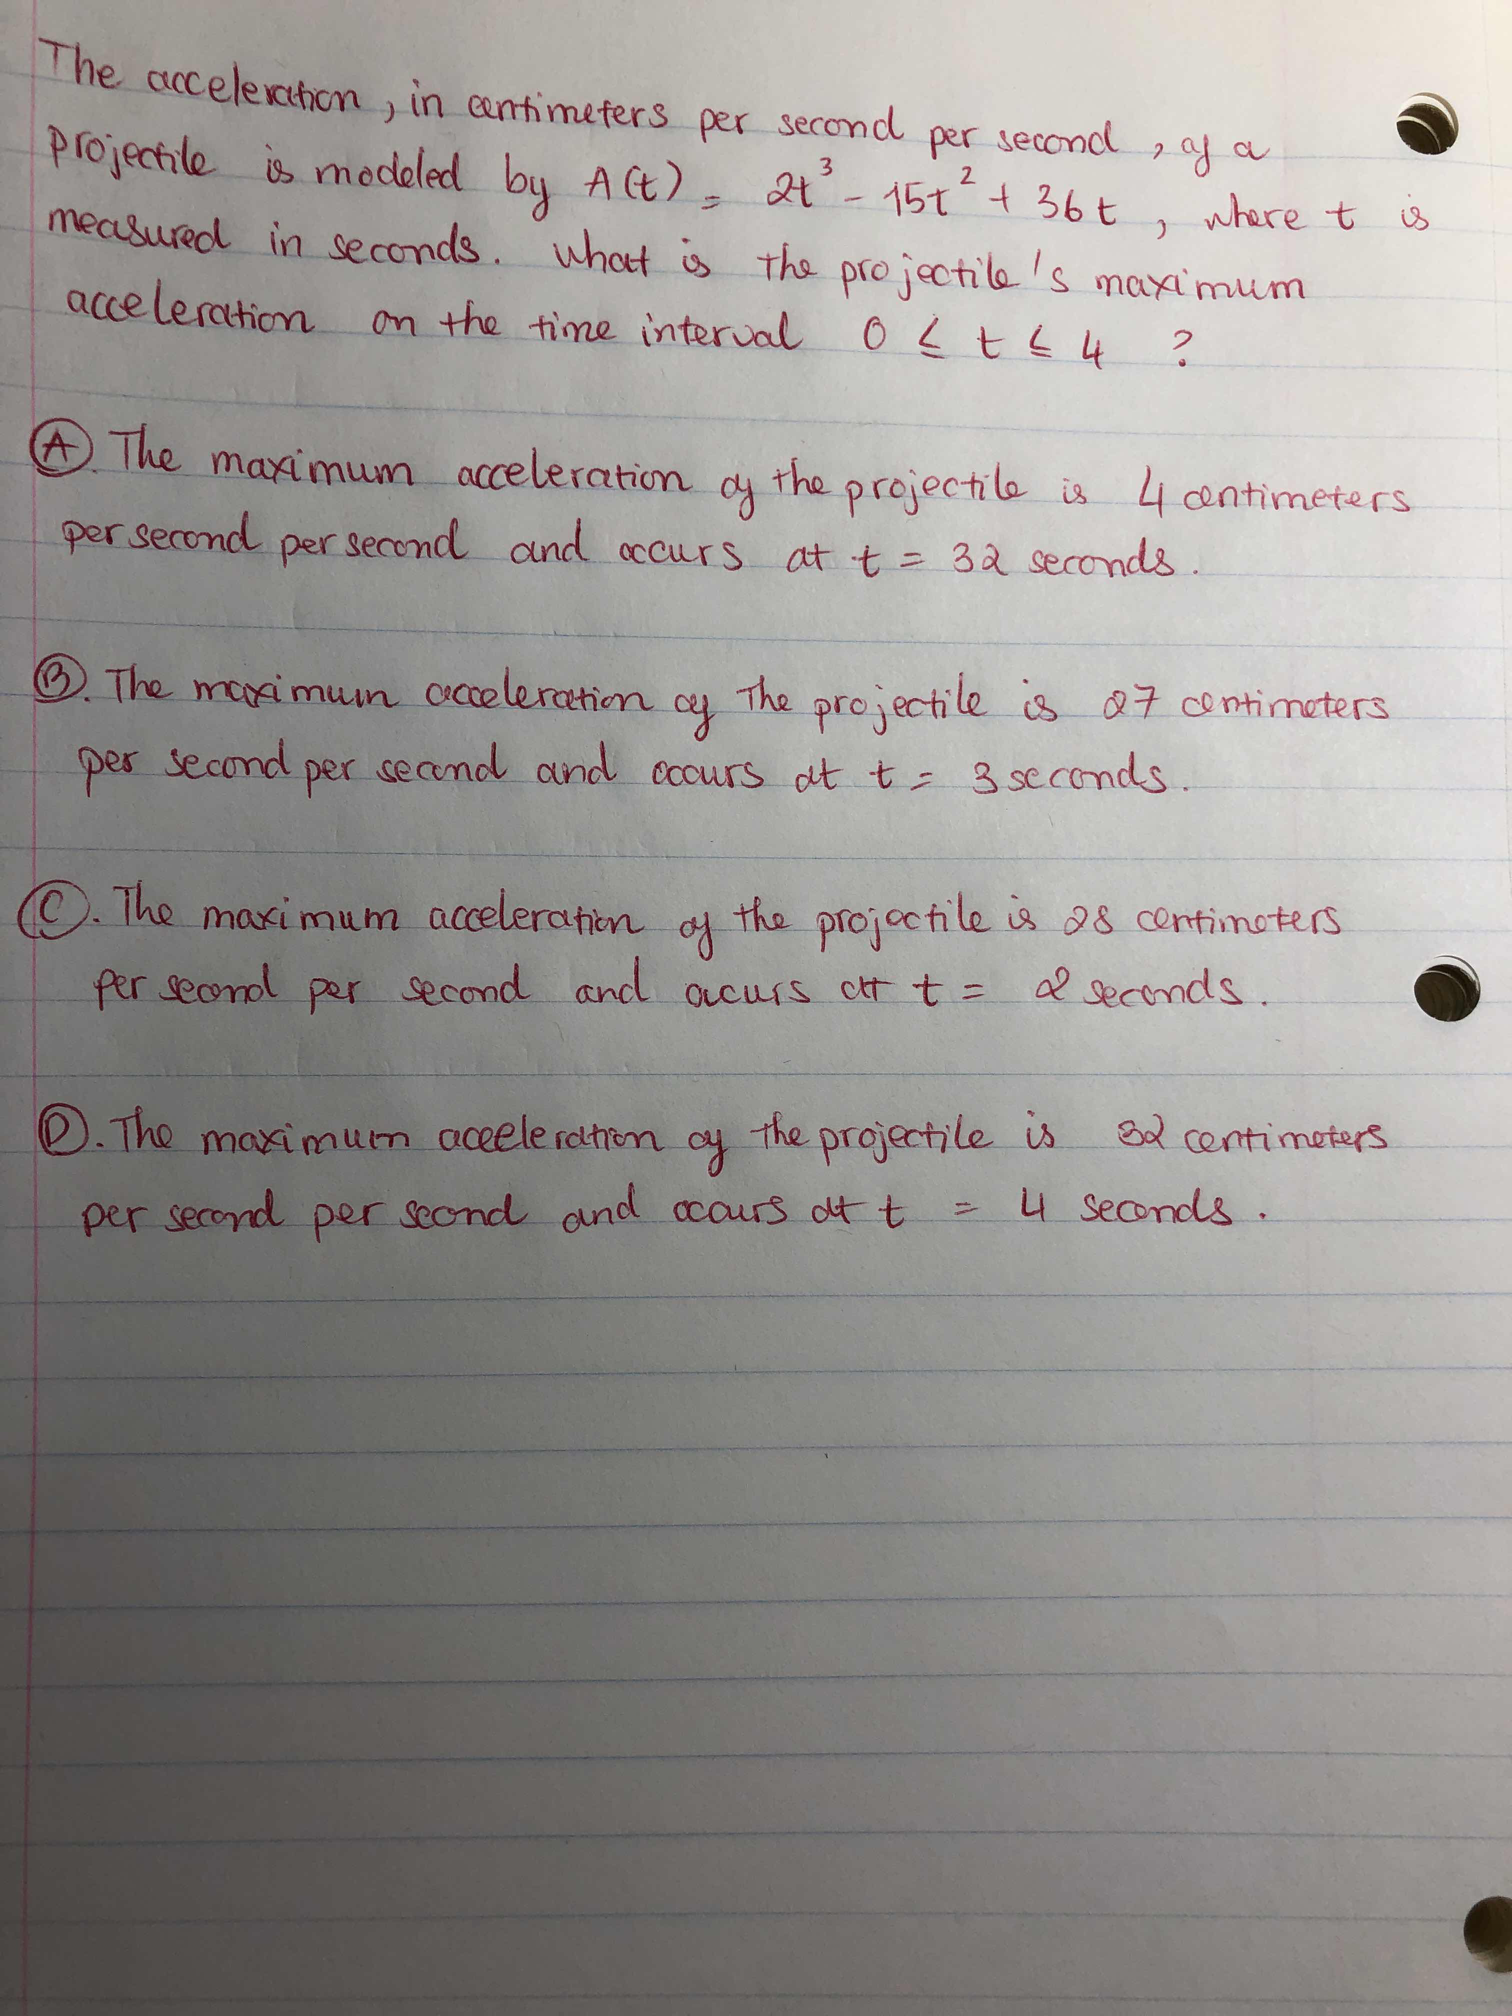 The acceleration, in centimeters per second per second, of a
projectile is modeled by A(t) = 2t³ - 15t² + 36t, where t is
measured in seconds. What is the projectile's maximum
acceleration on the time interval 0 ≤ t ≤ 4 ?
Ⓐ. The maximum acceleration of the projectile is 4 centimeters
per second per second and occurs at t = 32 seconds.
Ⓑ. The maximum acceleration of the projectile is 27 centimeters
per second per second and occurs at t = 3 seconds.
Ⓒ. The maximum acceleration of the projectile is 28 centimeters
per second per second and occurs at t = 2 seconds.
Ⓓ. The maximum acceleration of the projectile is 32 centimeters
per second per second and occurs at t = 4 seconds.